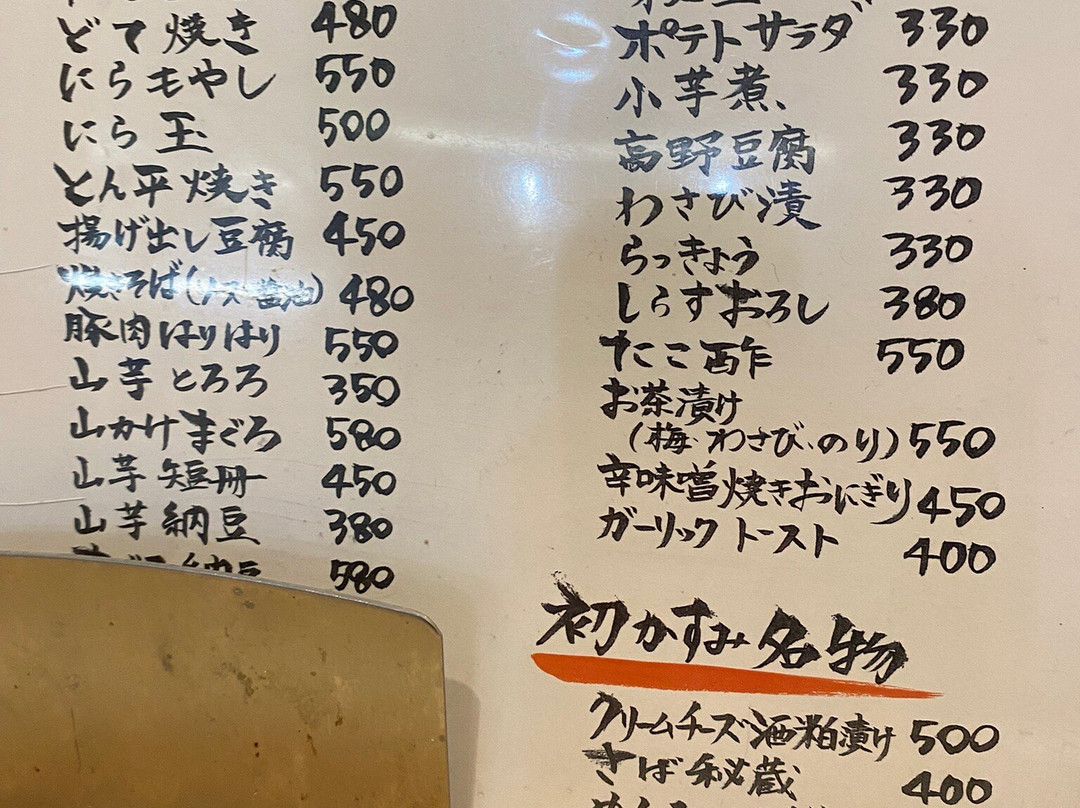 どて焼き 480
にらもやし 550
にら玉 500
とん平焼き 550
揚げ出し豆腐 450
焼そば(ソース・醤油) 480
豚肉はりはり 550
山芋とろろ 350
山かけまぐろ 580
山芋短冊 450
山芋納豆 380
納豆 580
ポテトサラダ 330
小芋煮 330
高野豆腐 330
わさび漬 330
らっきょう 330
しらすおろし 380
たこ酢 550
お茶漬け
(梅・わさび・のり) 550
辛味噌焼きおにぎり 450
ガーリックトースト
400
初かすみ名物
クリームチーズ酒粕漬け 500
さば秘蔵 400